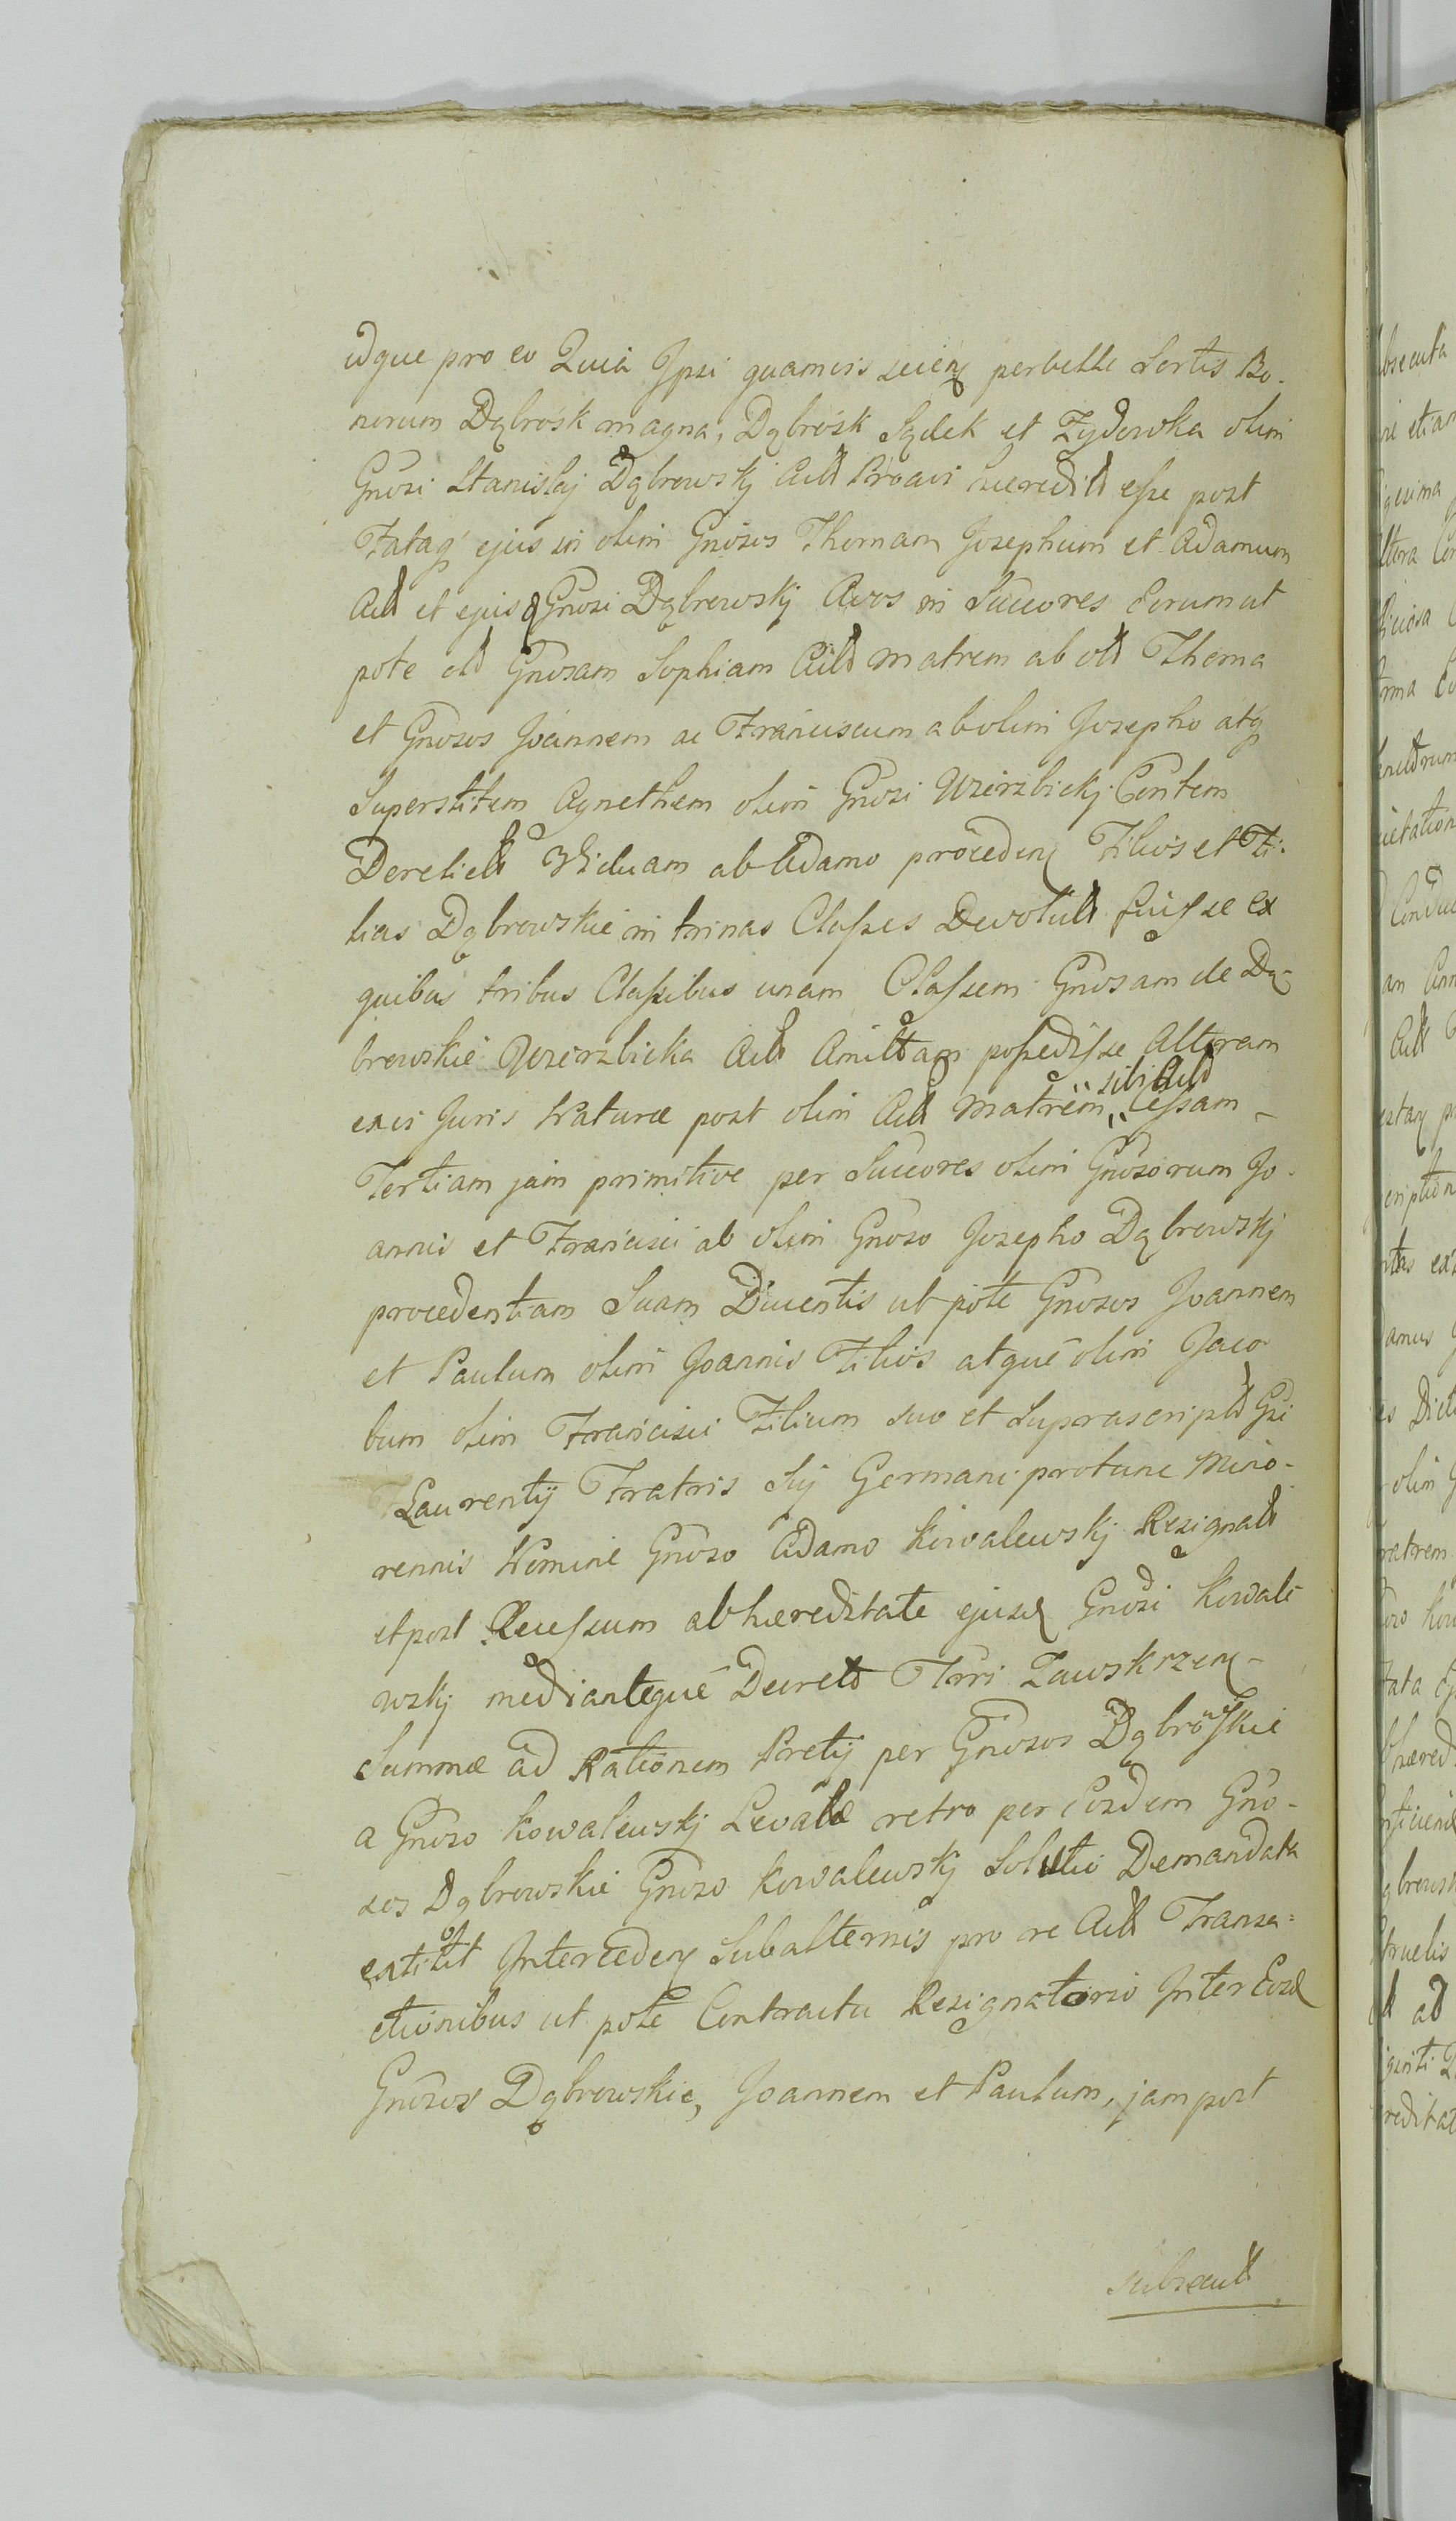 idque pro eo Quia Ipsi quamvis scien perbelle Sortis Bo-
norum Dąbrosk magna, Dąbrosk Sądek et Zydowka olim
Gnosi Stanislaj Dąbrowskj Actt Proavi haeredit esse post
Fataq ejus in olim Gnosos Thomam Josephum et Adamum
Actt et ejusd Gnosi Dąbrowskj Avos in Succores Eorum ut
pote olt Gnosam Sophiam Actt Matrem ab olt Thoma
et Gnosos Joannem ac Franciscum ab olim Josepho atq
Superstitem Agnethem olim Gnosi Wierzbickj Contem
Derelict Viduam ab Adamo proceden Filios et Fi-
lias Dąbrowskie in trinas Classes Devolut fuisse ex
quibus tribus Classibus unam Classem Gnosam de Dą-
browskie Wierzbicka Actt Amittam possedisse Alteram
exvi Juris Naturae post olim Actt Matrem sibi Actt Cessam
Tertiam jam primitive per Succores olim Gnosorum Jo-
annis et Francisci ab olim Gnoso Josepho Dąbrowskj
procedentiam Suam Ducentis ut pote Gnosos Joannem
et Paulum olim Joannis Filios atque olim Jaco
bum olim Francisci Filium suo et Suprascript Gsi
Laurentij Fratris Sij Germani protunc Mino-
rennis Nomine Gnoso Adamo Kowalewskj Resignatt
et post Recessum ab haereditate ejusd Gnosi Kowale
wskj mediantequé Decret Trri Zawskrzen
Summae ad Rationem Pretij per Gnosos Dąbrowskie
a Gnoso Kowalewskj Levatae retro per Eosdem Gno-
sos Dąbrowskie Gnoso Kowalewskj Solutio Demandata
extitit Interceden Subalternis pro re Actt Transa=
ctionibus ut pote Contractu Resignatorio Inter Eosd
Gnosos Dąbrowskie, Joannem et Paulum, jam post
subsecutt